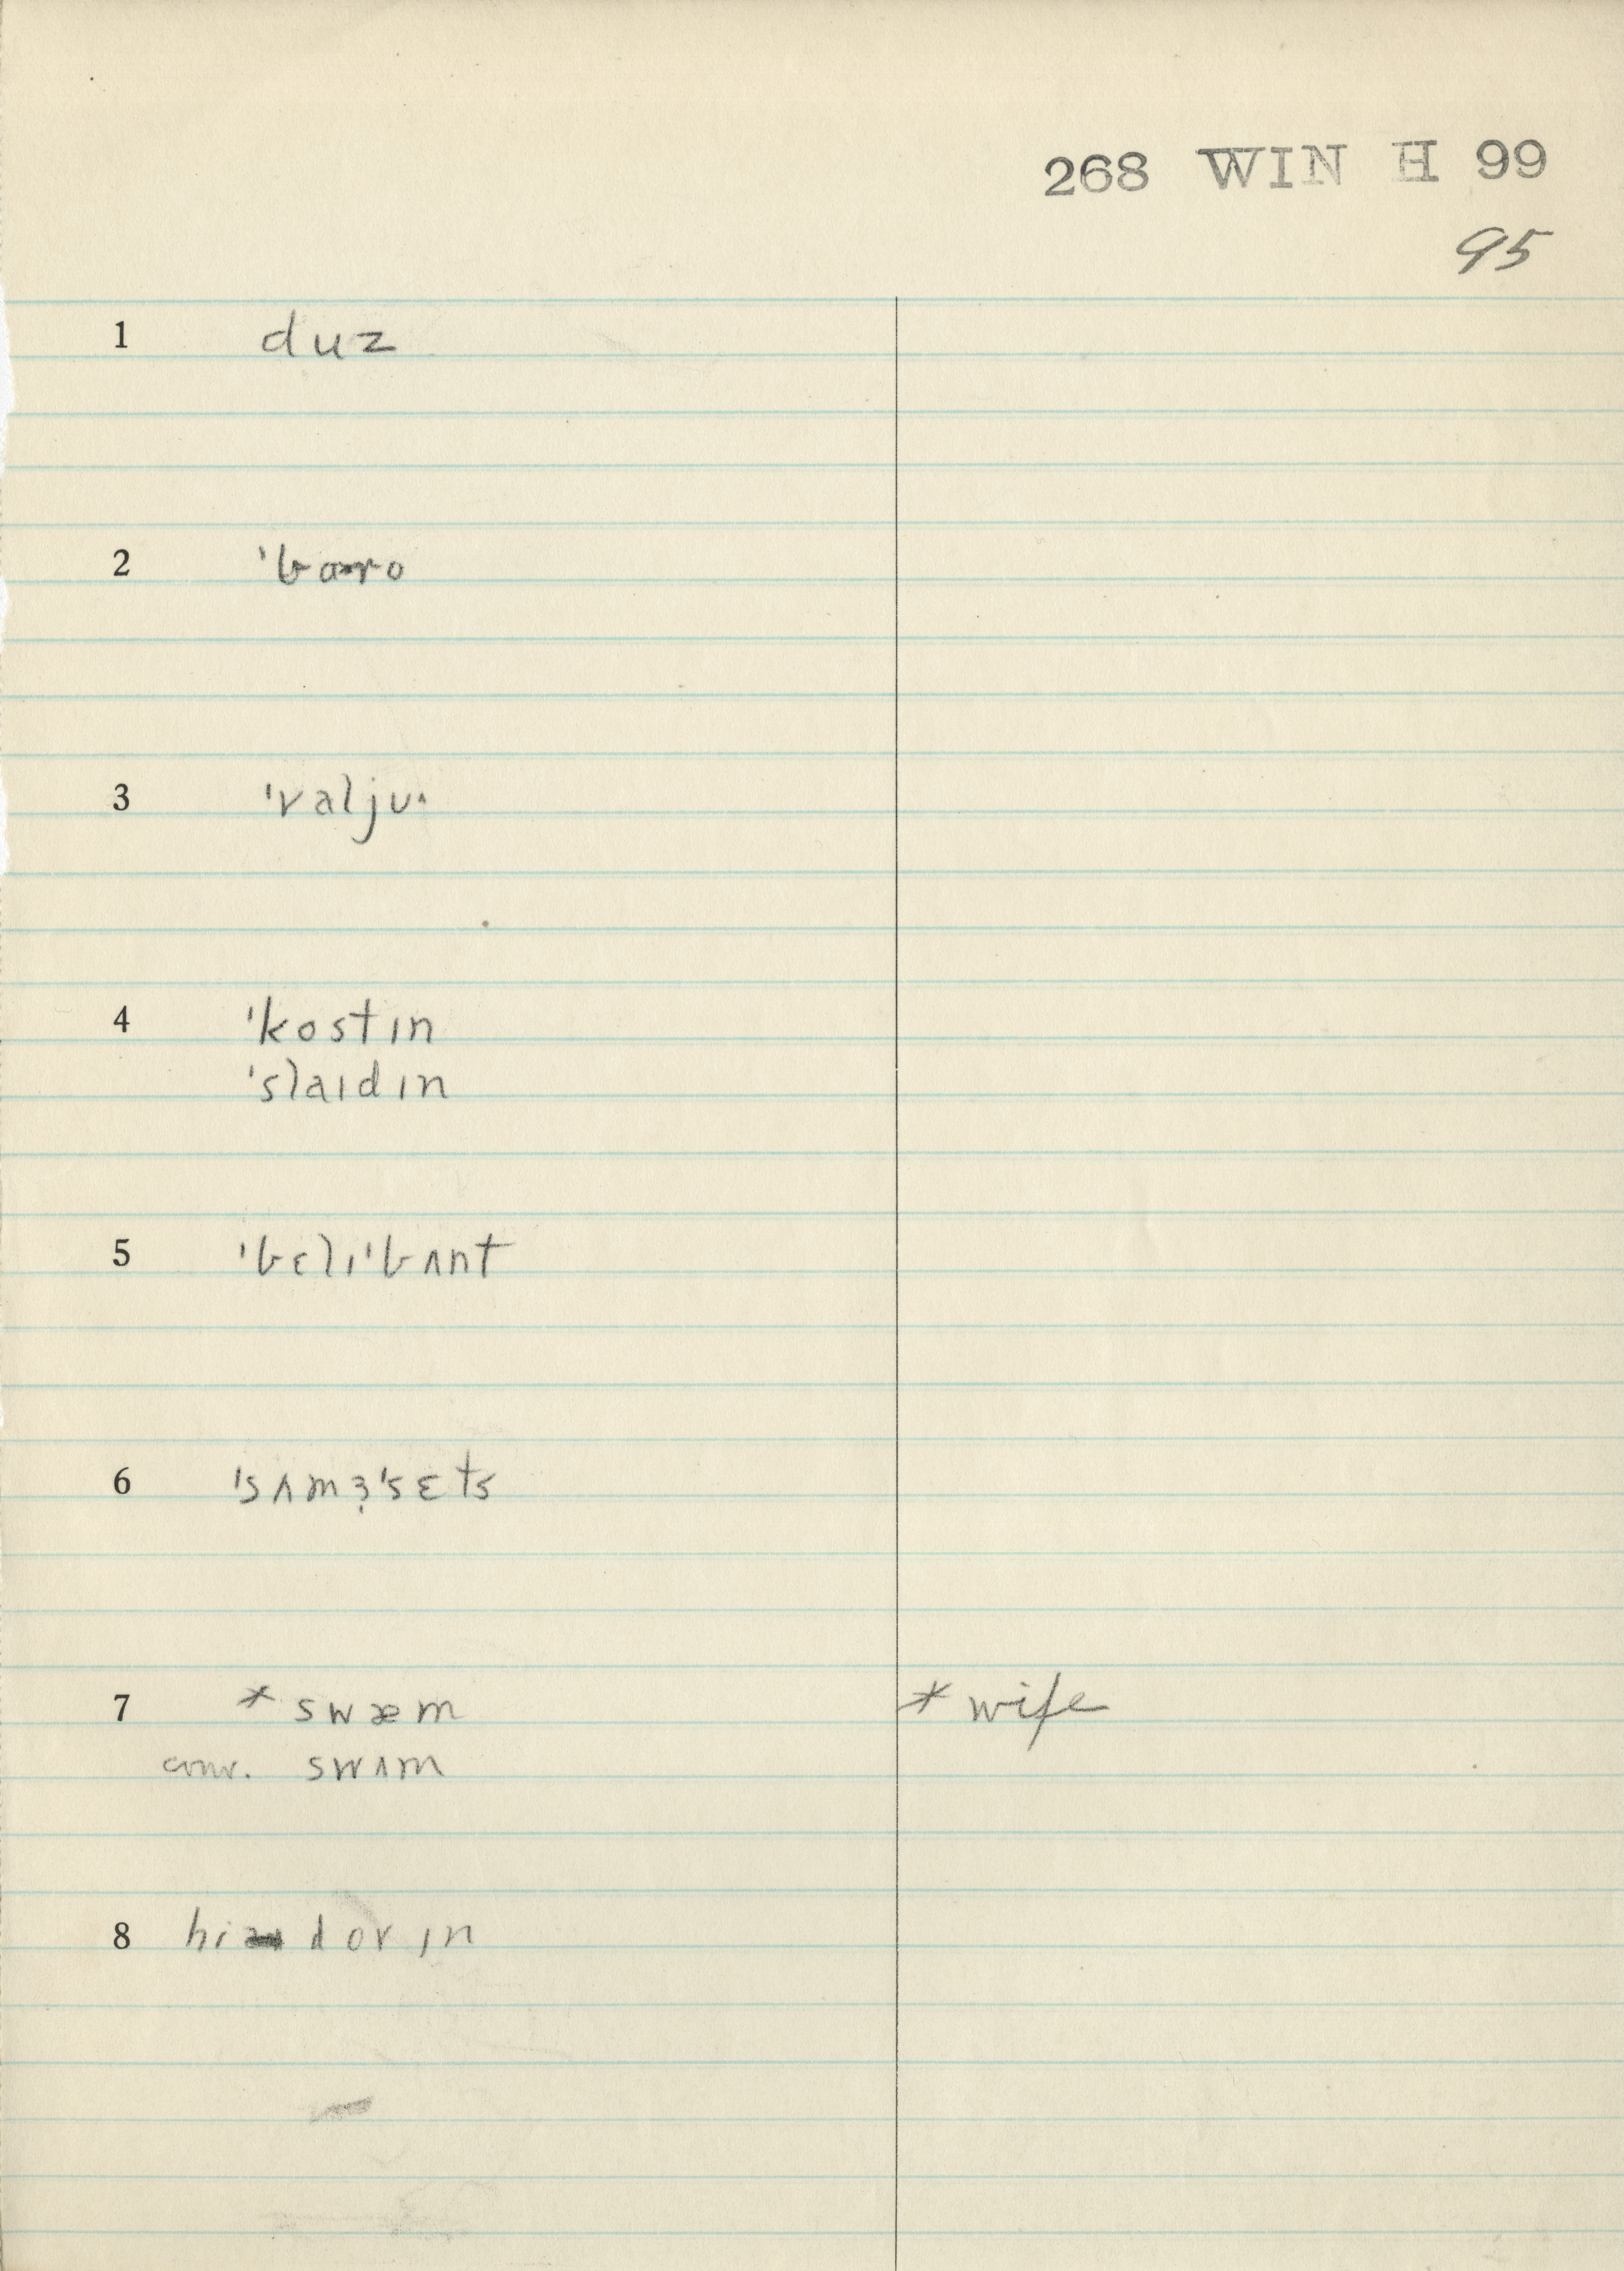 268 WIN H 99
95
1 duz
2 'baro
3 'valju·
4 'kostɪn
'slaɪdɪn
5 'bɛlɪ'bʌnt
6 'sʌmɜ̣'sɛts
7 * swæm * wife
conv. swʌm
8 hi dovɪn